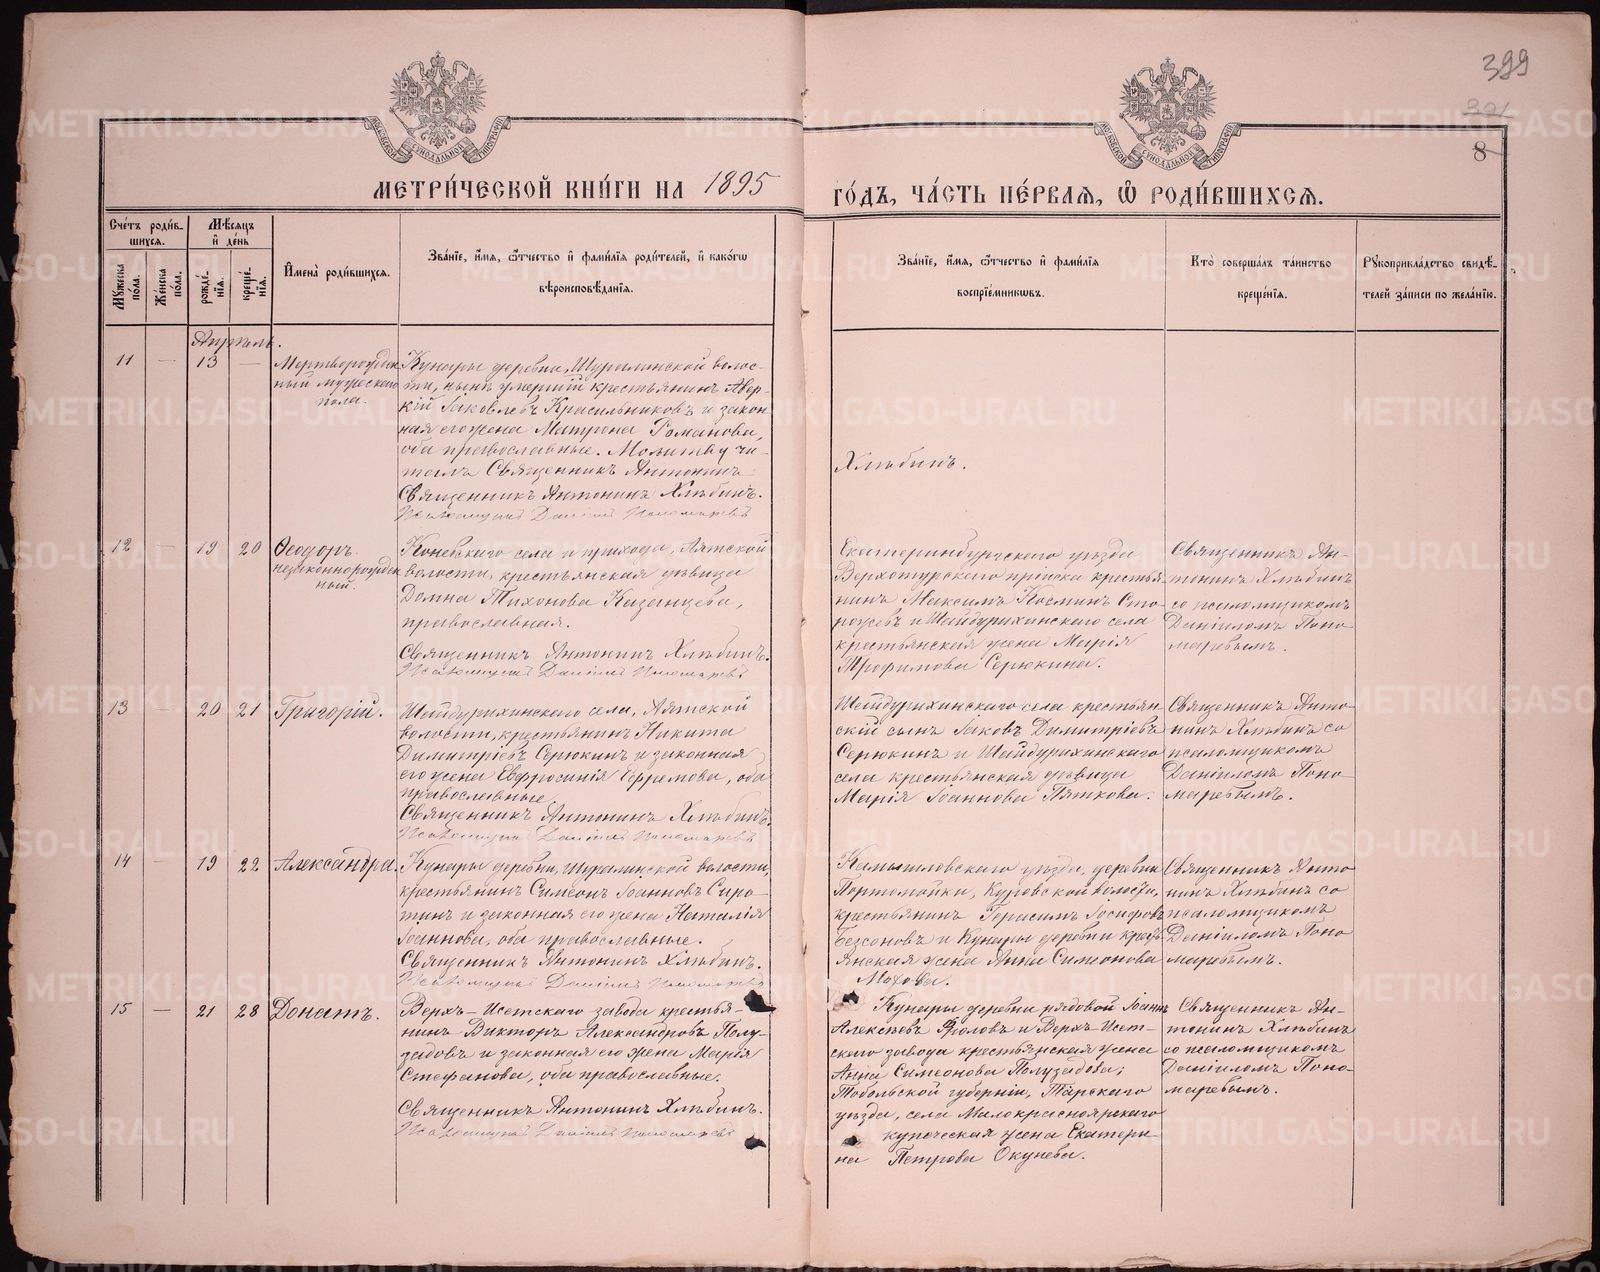 399
8
МОСКОВСКОЙ СѴНОДАЛЬНОЙ ТИПОГРАФІИ
МОСКОВСКОЙ СѴНОДАЛЬНОЙ ТИПОГРАФІИ
МЕТРИ́ЧЕСКОЙ КНИ́ГИ НА 1895
ГО́ДЪ, ЧА́СТЬ ПЕ́РВАЯ, Ѽ РОДИ́ВШИХСЯ.
Сче́тъ роди́в-
шихся.
Му́жеска
по́ла.
Же́нска
по́ла.
Мѣ́сяцъ
и҆ де́нь
рожде́-
нїя.
креще́-
нїя.
И҆мена̀ роди́вшихся.
Зва́нїе, и҆́мя, ѻ҆́тчество и҆ фами́лїя роди́телей, и҆ како́гѡ
вѣроисповѣ́данїя.
Зва́нїе, и҆́мя, ѻ҆́тчество и҆ фами́лїя
воспрїе́мникѡвъ.
Кто̀ соверша́лъ та́инство
креще́нїя.
Рꙋкоприкла́дство свидѣ́-
телей за́писи по жела́нїю.
Апрѣль.
11 — 13 —
Мертворожден-
ный мужескаго
пола.
Кунары деревни, Шуралинской волос-
ти, нынѣ умершій крестьянинъ Авер-
кій Іаковлевъ Красильниковъ и закон-
ная его жена Матрона Романова,
оба православные. Молитву чи-
талъ Священникъ Антонинъ
Хлѣбинъ.
Священникъ Антонинъ Хлѣбинъ.
Псаломщикъ Даніилъ Пономаревъ
12 — 19 20
Ѳеодоръ.
незаконнорожден
ный.
Коневскаго села и прихода, Аятской
волости, крестьянская дѣвица
Домна Тихонова Казанцева,
православная.
Священникъ Антонинъ Хлѣбинъ.
Псаломщикъ Даніилъ Пономаревъ
Екатеринбургскаго уѣзда
Верхотурскаго пріиска крестья-
нинъ Максимъ Косминъ Сто-
рожевъ и Шайдурихинскаго села
крестьянская жена Марія
Трофимова Серюкина.
Священникъ Ан-
тонинъ Хлѣбинъ
со псаломщикомъ
Даніиломъ Поно-
маревымъ.
13 — 20 21
Григорій.
Шайдурихинскаго села, Аятской
волости, крестьянинъ Никита
Димитріевъ Серюкинъ и законная
его жена Евфросинія Ефремова, оба
православные.
Священникъ Антонинъ Хлѣбинъ.
Псаломщикъ Даніилъ Пономаревъ
Шайдурихинскаго села крестьян
скій сынъ Іаковъ Димитріевъ
Серюкинъ и Шайдурихинскаго
села крестьянская дѣвица
Марія Іоаннова Пяткова.
Священникъ Анто-
нинъ Хлѣбинъ со
псаломщикомъ
Даніиломъ Поно-
маревымъ.
14 — 19 22
Александра.
Кунары деревни, Шуралинской волости,
крестьянинъ Симеонъ Іоанновъ Сиро-
тинъ и законная его жена Наталія
Іоаннова, оба православные.
Священникъ Антонинъ Хлѣбинъ.
Псаломщикъ Даніилъ Пономаревъ
Камышловскаго уѣзда, деревни
Портомойки, Куровской волости,
крестьянинъ Герасимъ Іосифовъ
Безсоновъ и Кунары деревни кресть
янская жена Анна Симеонова
Махова.
Священникъ Анто
нинъ Хлѣбинъ со
псаломщикомъ
Даніиломъ Поно
маревымъ.
15 — 21 28
Донатъ.
Верхъ-Исетскаго завода крестья-
нинъ Викторъ Александровъ Полу-
задовъ и законная его жена Марія
Стефанова, оба православные.
Священникъ Антонинъ Хлѣбинъ.
Псаломщикъ Даніилъ Пономаревъ
Кунары деревни рядовой Іоаннъ
Алексѣевъ Фроловъ и Верхъ-Исет-
скаго завода крестьянская жена
Анна Симеонова Полузадова;
Тобольской губерніи, Тарскаго
уѣзда, села Малокрасноярскаго
купеческая жена Екатери-
на Петрова Окунева.
Священникъ Ан-
тонинъ Хлѣбинъ
со псаломщикомъ
Даніиломъ Поно-
маревымъ.
METRIKI.GASO-URAL.RU